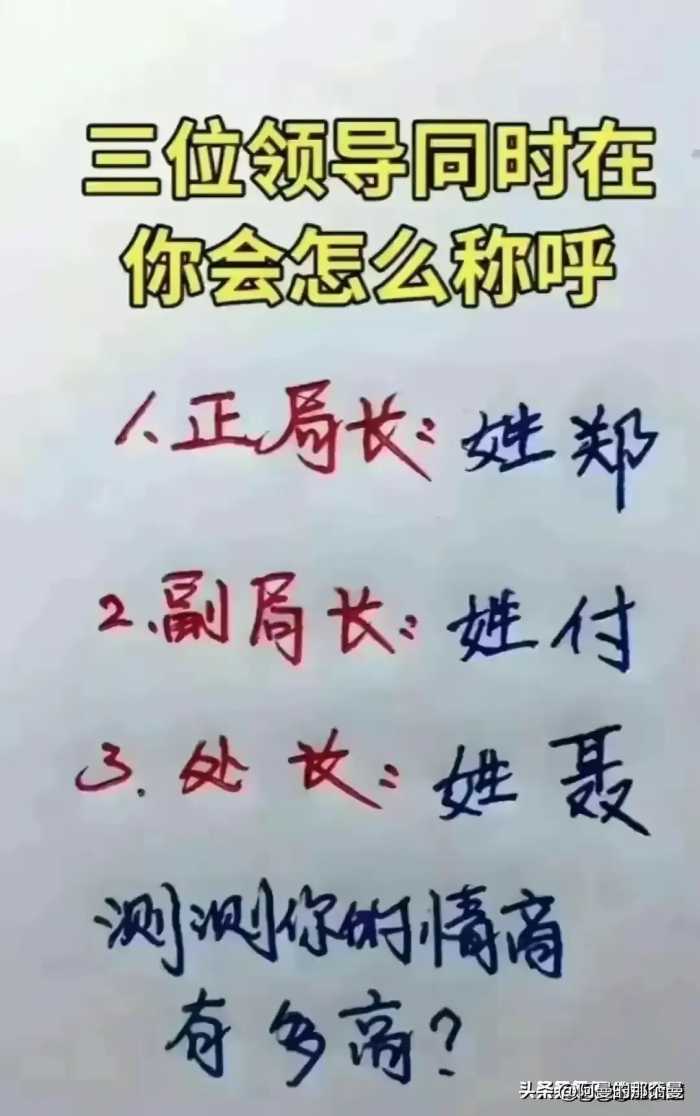 三位领导同时在
你会怎么称呼
1、正局长：姓郑
2、副局长：姓付
3、处长：姓聂
测测你的情商
有多高？
头条 @阿曼的那个曼